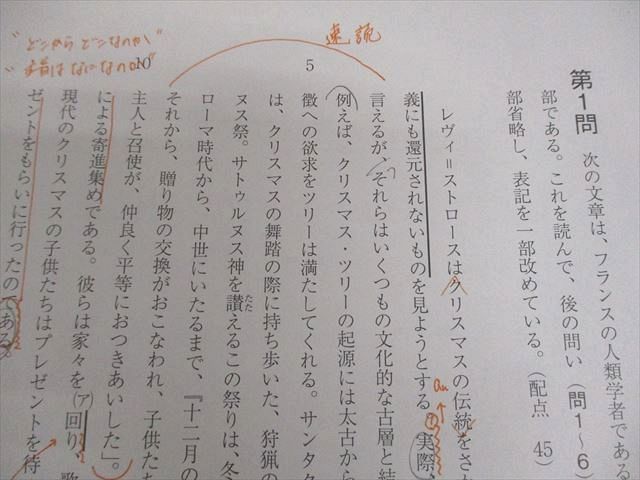 第1問　次の文章は、フランスの人類学者である
部である。これを読んで、後の問い（問1～6）
部省略し、表記を一部改めている。（配点　45）
レヴィ＝ストロースはクリスマスの伝統をさか
義にも還元されないものを見ようとする。実際、
言えるが、それらはいくつもの文化的な古層と結
例えば、クリスマス・ツリーの起源には太古から
5
徴への欲求をツリーは満たしてくれる。サンタク
は、クリスマスの舞踏の際に持ち歩いた、狩猟の
ヌス祭。サトゥルヌス神を讃えるこの祭りは、冬
たた
ローマ時代から、中世にいたるまで、『十二月の
それから、贈り物の交換がおこなわれ、子供たち
主人と召使が、仲良く平等におつきあいした」。
10
による寄進集めである。彼らは家々を(ア)回り、歌
現代のクリスマスの子供たちはプレゼントを待
ゼントをもらいに行ったのである。
速読
"どこからどこなのか"